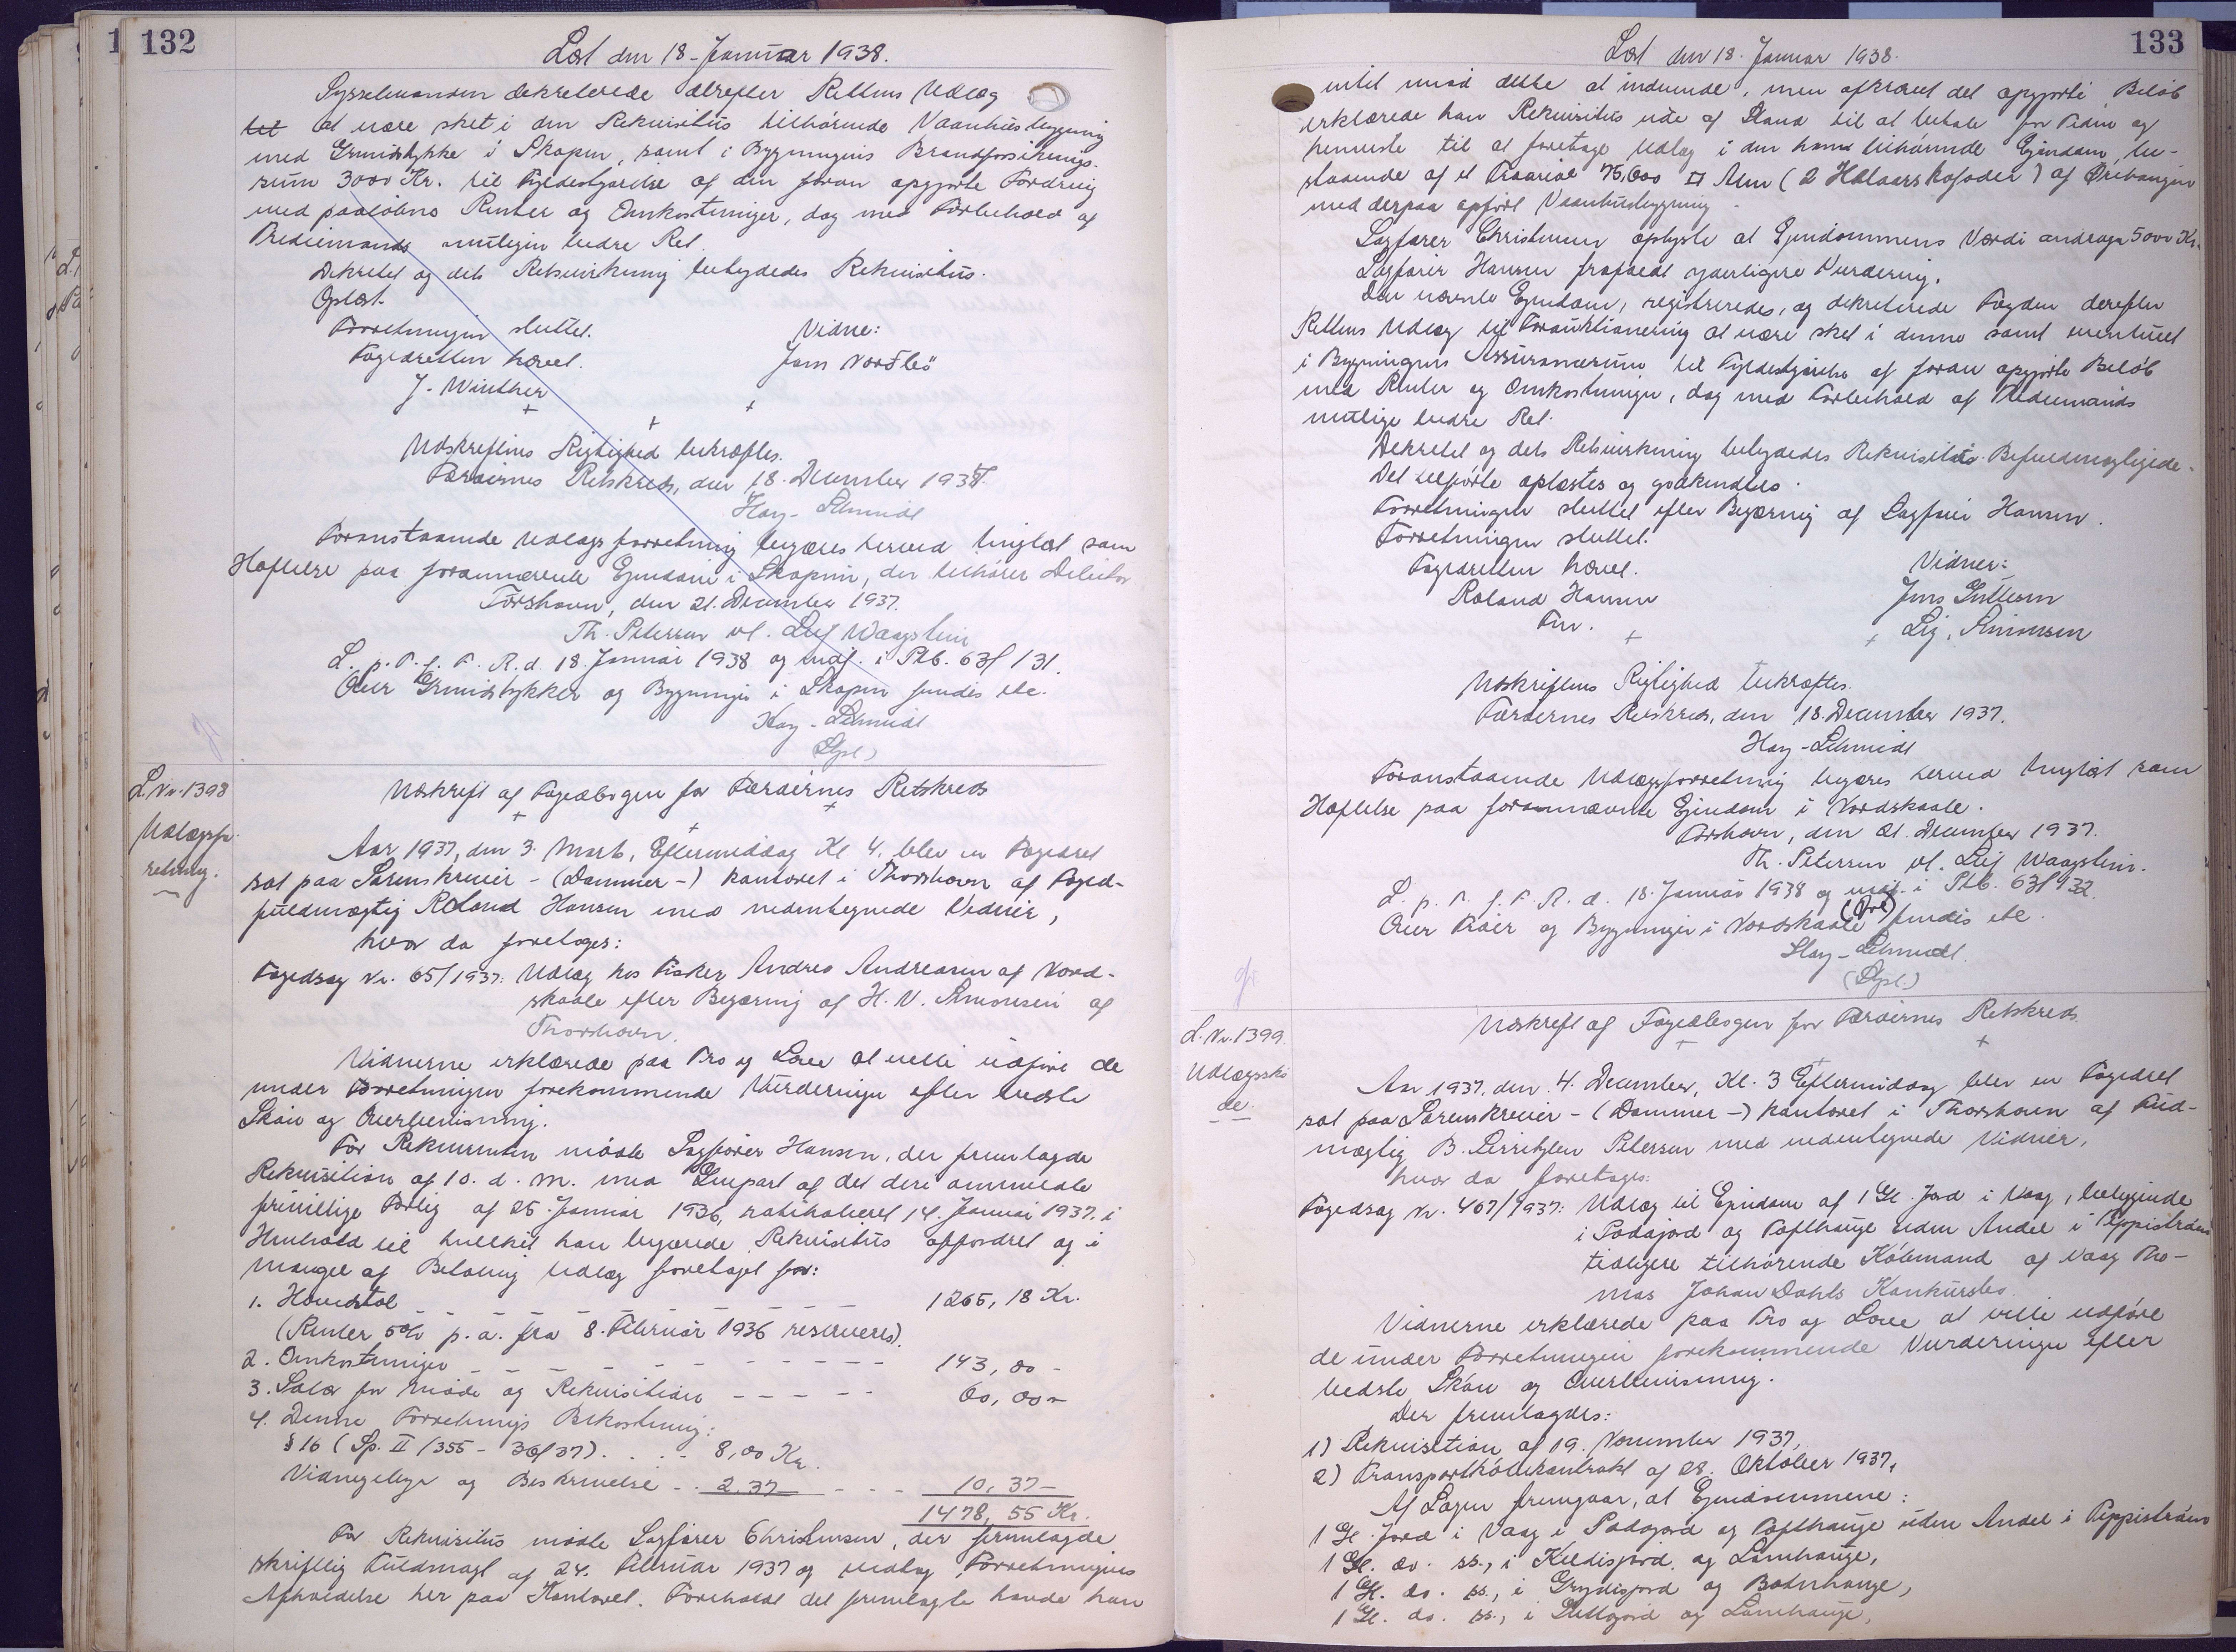 132
Læst den 18-Januar 1938.
Sysselmanden dekreterede derefter Rettens Udlæg
at være sket i den Rekvisitus tilhørende Vaanhusbygning
med Grundstykke i Skopun, samt i Bygningens Brandforsikrings-
sum 3000 Kr. til Fyldestgørelse af den foran opgjorte Fordring
med paaløbne Renter og Omkostninger, dog med Forbehold af
Trediemands muligen bedre Ret.
Dekretet og dets Retsvirkning betydedes Rekvisitus.
Oplæst.
Forretningen sluttet.
Vidne:
Fogedretten hævet.
J. Winther
Udskriftens Rigtighed bekræftes.
Færøernes Retskreds, den 18. December 1937.
Hay-Schmidt
Foranstaaende Udlægsforretning begæres herved tinglæst som
Hæftelse paa forannævnte Ejendom i Skopun, der tilhører Debitor.
Tórshavn, den 21. December 1937.
Th. Petersen vl. Leif Waagstein
L. p. T. f. F. R. d. 18. Januar 1938 og indf. i Ptb. 63f 131.
Over Grundstykker og Bygninger i Skopun fundes etc.
Hay-Schmidt
L.Nr.1398
Udlægsfor-
retning.
Udskrift af Fogedbogen for Færøernes Retskreds
Aar 1937, den 3. Marts, Eftermiddag Kl. 4. blev en Fogedret
sat paa Sorenskriver- (Dommer-) kontoret i Thorshavn af Foged-
fuldmægtig Roland Hansen med undertegnede Vidner,
hvor da foretoges:
Fogedsag Nr. 65/1937: Udlæg hos Fisker Andreas Andreasen af Nord-
skaale efter Begæring af H. N. Simonsen af
Thorshavn.
Vidnerne erklærede paa Tro og Love at ville udføre de
under Forretningen forekommende Vurderinger efter bedste
Skøn og Overbevisning.
For Rekvirenten mødte Sagfører Hansen, der fremlagde
Rekvisition af 10. d. M. med Genpart af det deri ommeldte
frivillige Forlig af 25. Januar 1936, ratihaberet 14. Januar 1937. i
Henhold til hvilket han begærede Rekvisitus opfordret og i
Mangel af Betaling Udlæg foretaget for:
1. Hovedstol 1265,18 Kr.
(Renter 5% p. a. fra 8. Februar 1936 reserveres).
2. Omkostninger 143,00 -
3. Salær for Møde og Rekvisition 60,00 -
4. Denne Forretnings Bekostning:
§16 (Sp. II/355 - 30/37) 8,00 Kr.
Vidnegebyr og Beskrivelse 2,37 10,37 -
1478,55 Kr.
For Rekvisitus mødte Sagfører Christensen, der fremlagde
skriftlig Fuldmagt af 24. Februar 1937 og vedtog Forretningens
Afholdelse her paa Kontoret. Foreholdt det fremlagte havde han
133
Læst den 18. Januar 1938.
intet imod dette at indvende, men afkrævet det opgjorte Beløb
erklærede han Rekvisitus ude af Stand til at betale for Tiden og
henviste til at foretage Udlæg i den ham tilhørende Ejendom, be-
staaende af et Traðareal 75,600 □ Alen (2 Halvaarskøfoder) af Ørebaugen
med derpaa opført Vaanhusbygning.
Sagfører Christensen oplyste at Ejendommens Værdi androg 5000 Kr.
Sagfører Hansen frafaldt yderligere Vurdering.
Den nævnte Ejendom, registreredes, og dekreterede Fogden derefter
Rettens Udlæg til Forauktionering at være sket i denne samt eventuelt
i Bygningens Assurancesum til Fyldestgørelse af foran opgjorte Beløb
med Renter og Omkostninger, dog med Forbehold af Trediemands
mulige bedre Ret.
Dekretet og dets Retsvirkning betydedes Rekvisiti Befuldmægtigede.
Det tilførte oplæstes og godkendtes.
Forretningen sluttet efter Begæring af Sagfører Hansen.
Forretningen sluttet.
Fogedretten hævet.
Vidner:
Roland Hansen
Fm.
Sig. Simonsen
Udskriftens Rigtighed bekræftes.
Færøernes Retskreds, den 18. December 1937.
Hay-Schmidt
Foranstaaende Udlægsforretning begæres herved tinglæst som
Hæftelse paa forannævnte Ejendom i Nordskaale.
Tórshavn, den 21. December 1937.
Th. Petersen vl. Leif Waagstein.
L. p. T. f. F. R. d. 18. Januar 1938 og indf. i Ptb. 63f 132.
Over Traðer og Bygninger i Nordskaale fundes etc.
Hay-Schmidt.
L.Nr.1399.
Udlægsskø-
de.
Udskrift af Fogedbogen for Færøernes Retskreds.
Aar 1937, den 4. December, Kl. 3 Eftermiddag blev en Fogedret
sat paa Sorenskriver- (Dommer-) kontoret i Thorshavn af Fuld-
mægtig B. Lerritzlev Petersen med undertegnede Vidner,
hvor da foretages:
Fogedsag Nr. 467/1937: Udlæg til Ejendom af 1 Gl. Jord i Vaag, beliggende
i Podajord og Tofthauge uden Andel i
tidligere tilhørende Købmand af Vaag Tho-
mas Johan Dahls Konkursbo.
Vidnerne erklærede paa Tro og Love at ville udføre
de under Forretningen forekommende Vurderinger efter
bedste Skøn og Overbevisning.
Der fremlagdes:
1) Rekvisition af 19. November 1937,
2) Transportkøbekontrakt af 28. Oktober 1937.
Af Sagen fremgaar, at Ejendommene:
1 Gl. Jord i Vaag i Podajord og Tofthauge uden Andel i
1 Gl. do. ss., i Kildisjord og Lamhauge,
1 Gl. do. ss., i Grydisjord og Bodnhauge,
1 Gl. do. ss., i og Lamhauge,